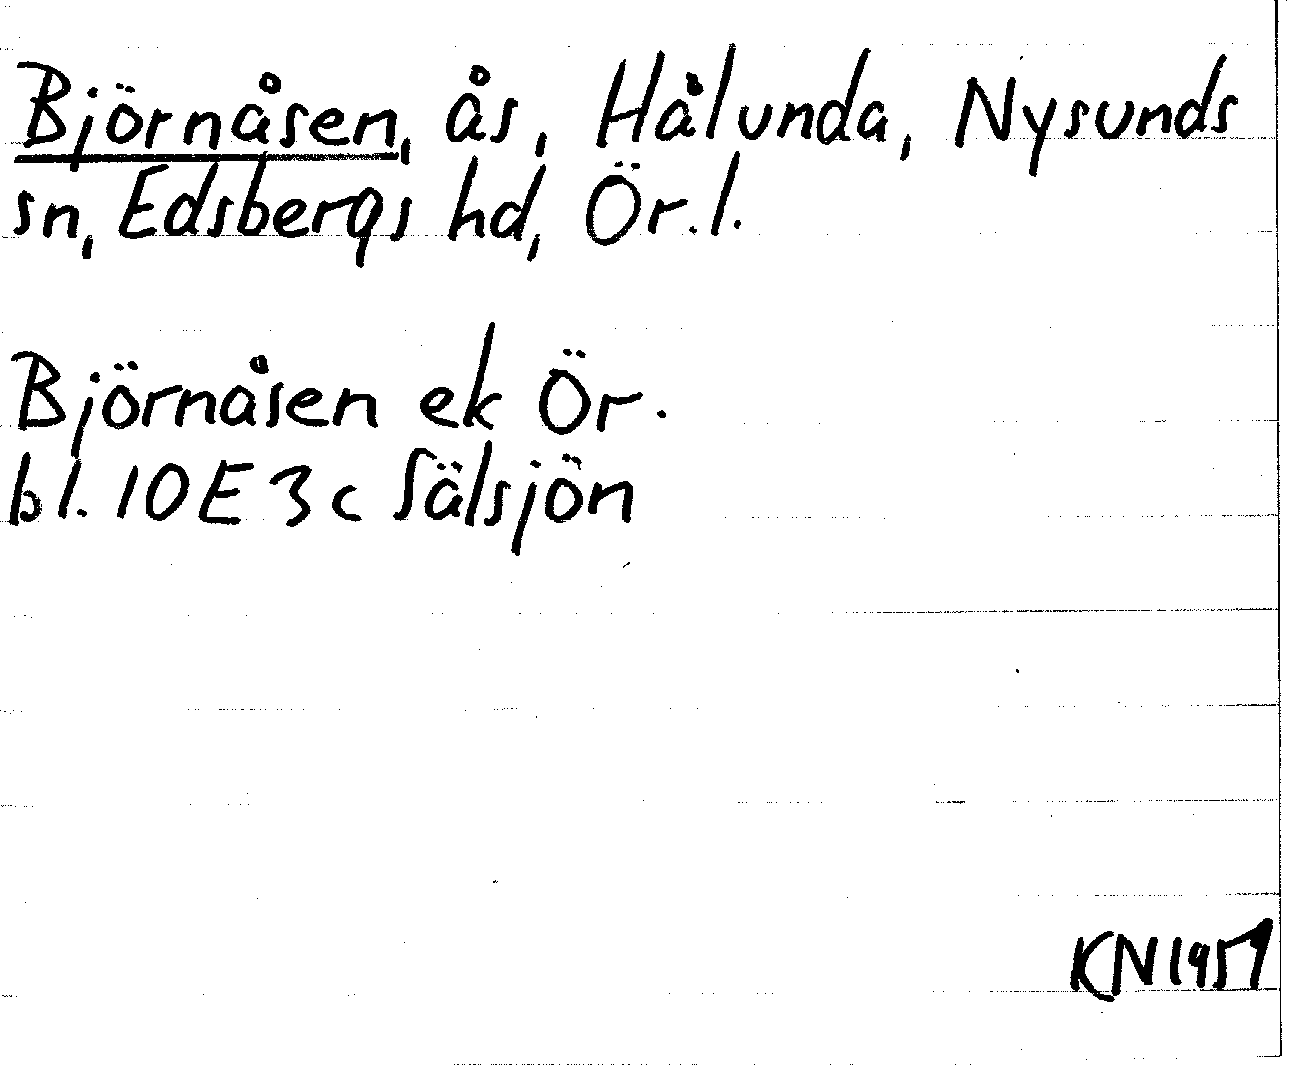 Björnåsen, ås, Hålunda, Nysunds
sn, Edsbergs hd, Ör.l.
Björnåsen ek Ör.
bl. 10E3c Sälsjön
KN 1957